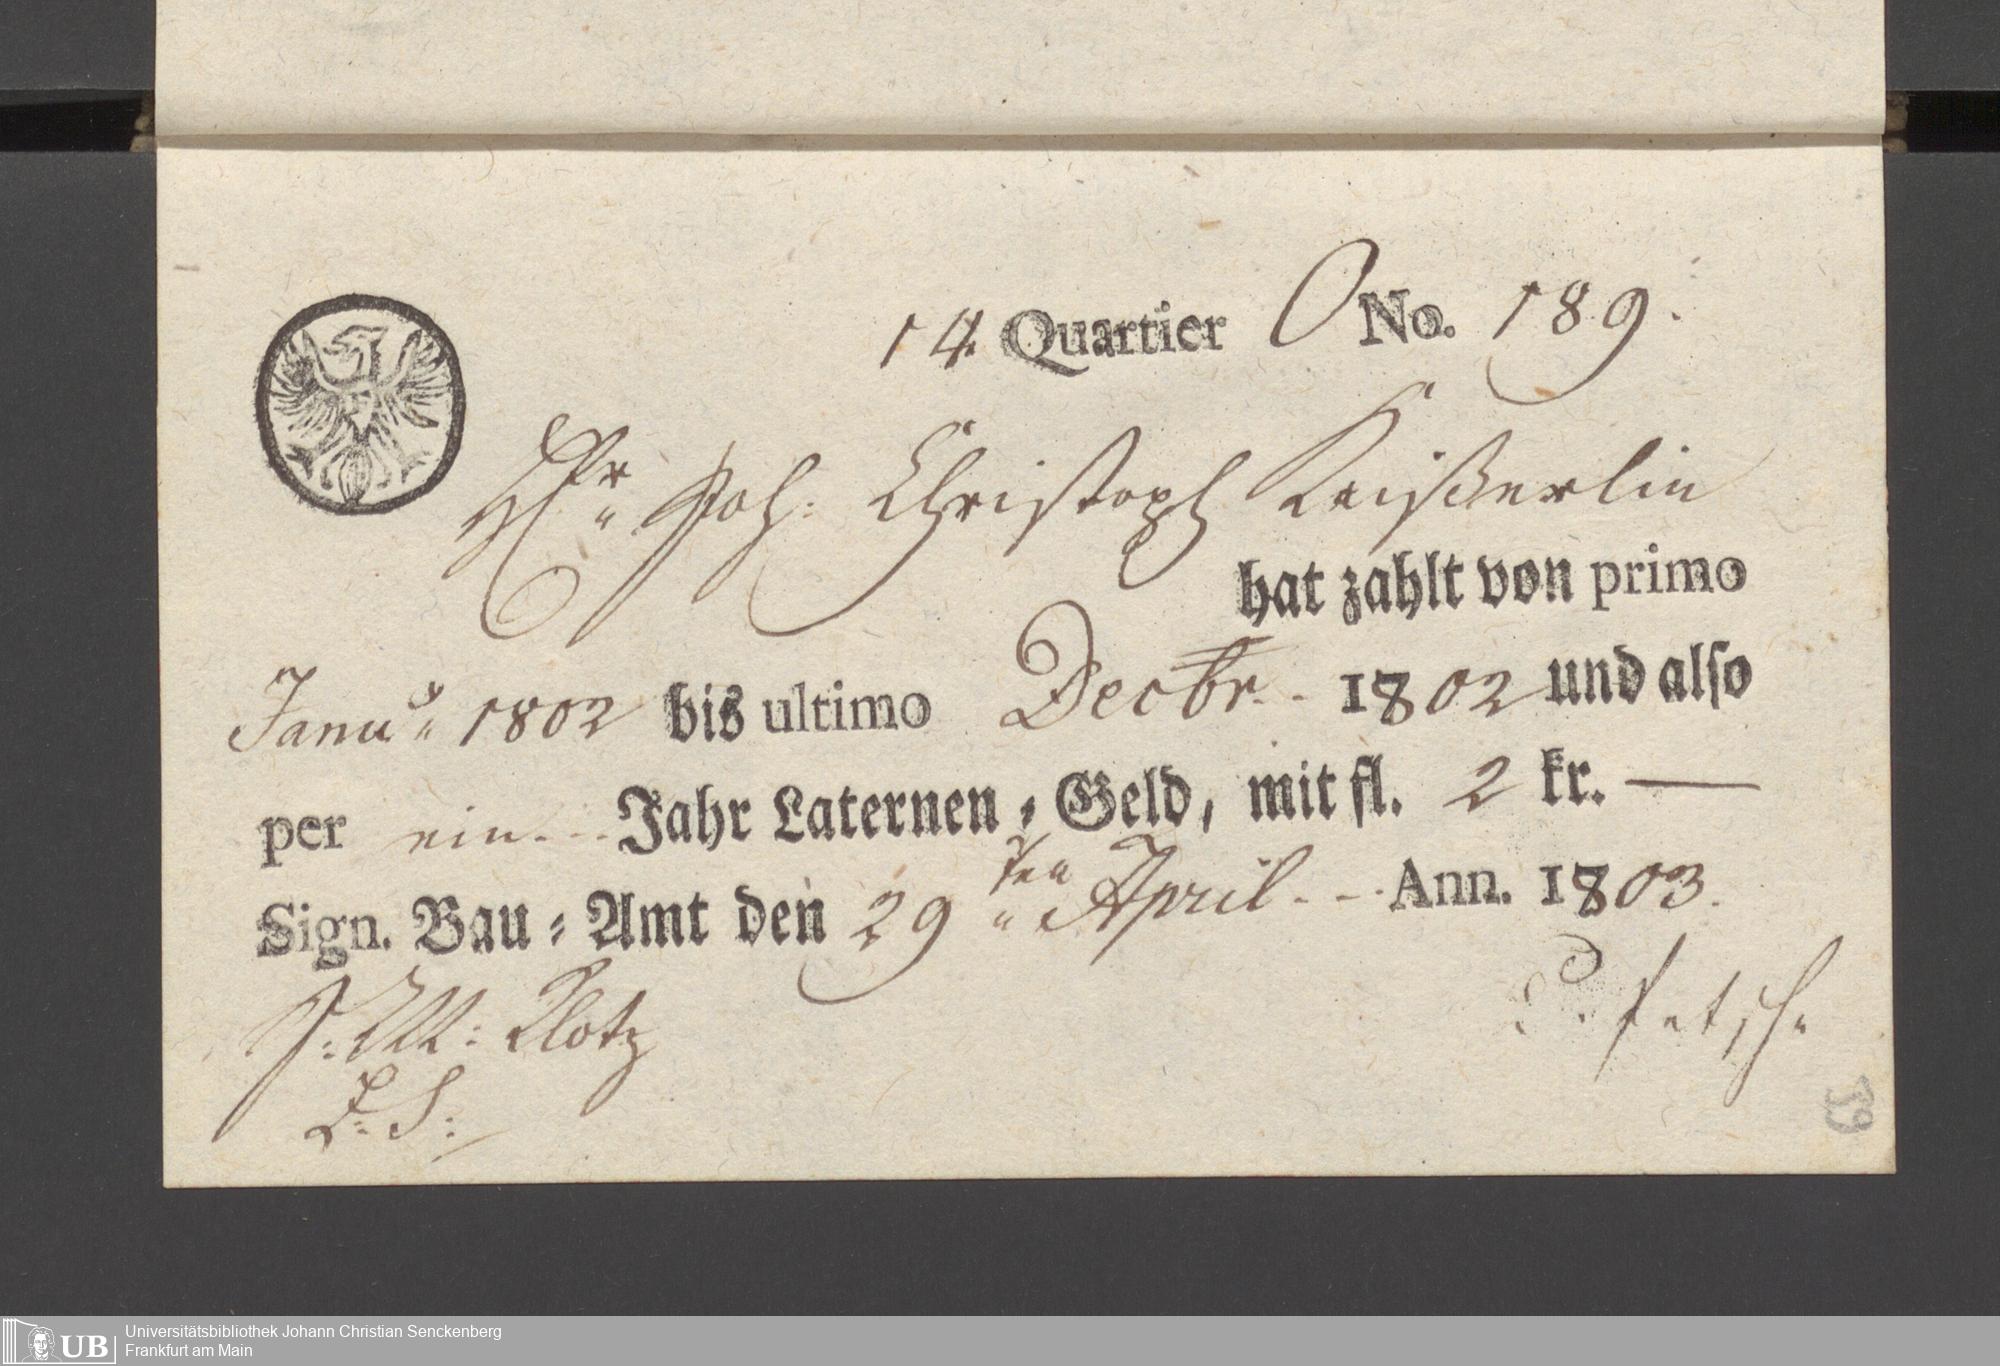 14 Quartier O No. 189.
Hr Joh: Christoph
hat zahlt von primo
Janu. 1802 bis ultimo Decbr. 1802 und also
per ein Jahr Laternen-Geld, mit fl. 2 kr. —
Sign. Bau-Amt den 29ten April Ann. 1803.
J: M: Klotz
Petsch
L: S:
UB Universitätsbibliothek Johann Christian Senckenberg
Frankfurt am Main